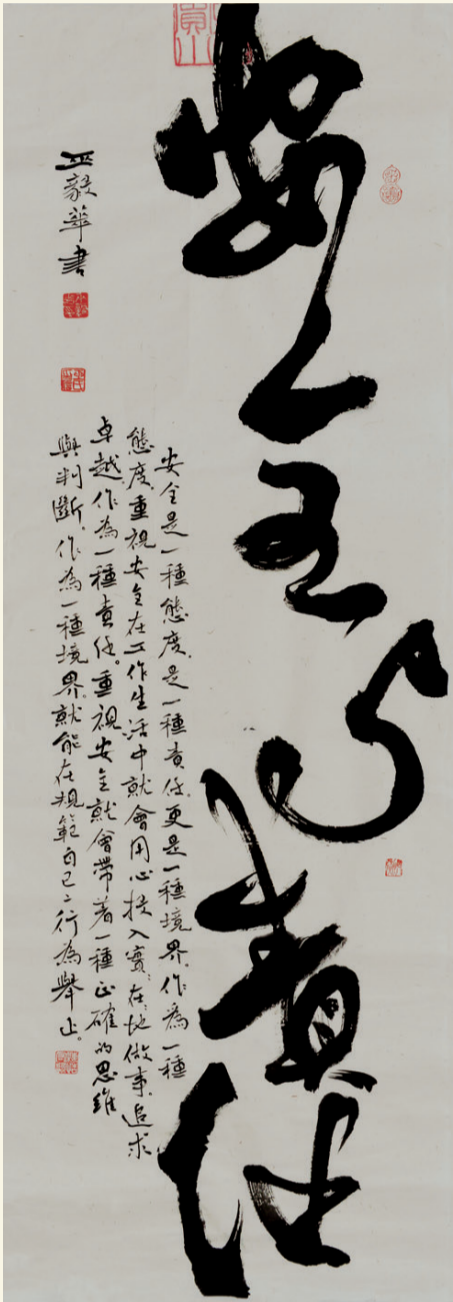 安全与責任
安全是一種態度,是一種責任,更是一種境界,作為一種
態度,重視安全在工作生活中就會用心投入,實々在々地做事,追求
卓越,作為一種責任。重視安全就會帶着一種正確的思維
與判斷,作為一種境界,就能在規範自己行為舉止。
毅華書